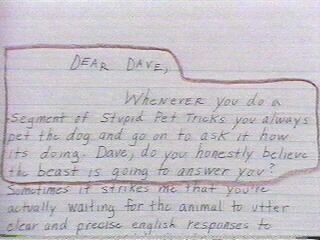 DEAR DAVE,
WHENEVER you do a
segment of Stupid Pet Tricks you always
pet the dog and go on to ask it how
its doing. Dave, do you honestly believe
the beast is going to answer you?
Sometimes it strikes me that you're
actually waiting for the animal to utter
clear and precise english responses to